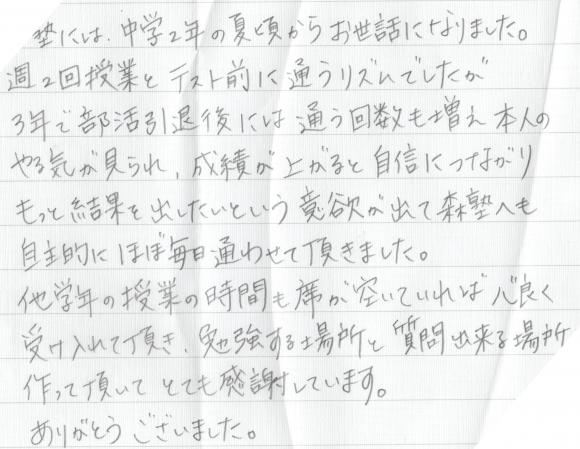 塾には、中学2年の夏頃からお世話になりました。
週2回授業とテスト前に通うリズムでしたが
3年で部活引退後には通う回数も増え本人の
やる気が見られ、成績が上がると自信につながり
もっと結果を出したいという意欲が出て森塾へも
自主的にほぼ毎日通わせて頂きました。
他学年の授業の時間も席が空いていれば心良く
受け入れて頂き、勉強する場所と質問出来る場所
作って頂いてとても感謝しています。
ありがとうございました。